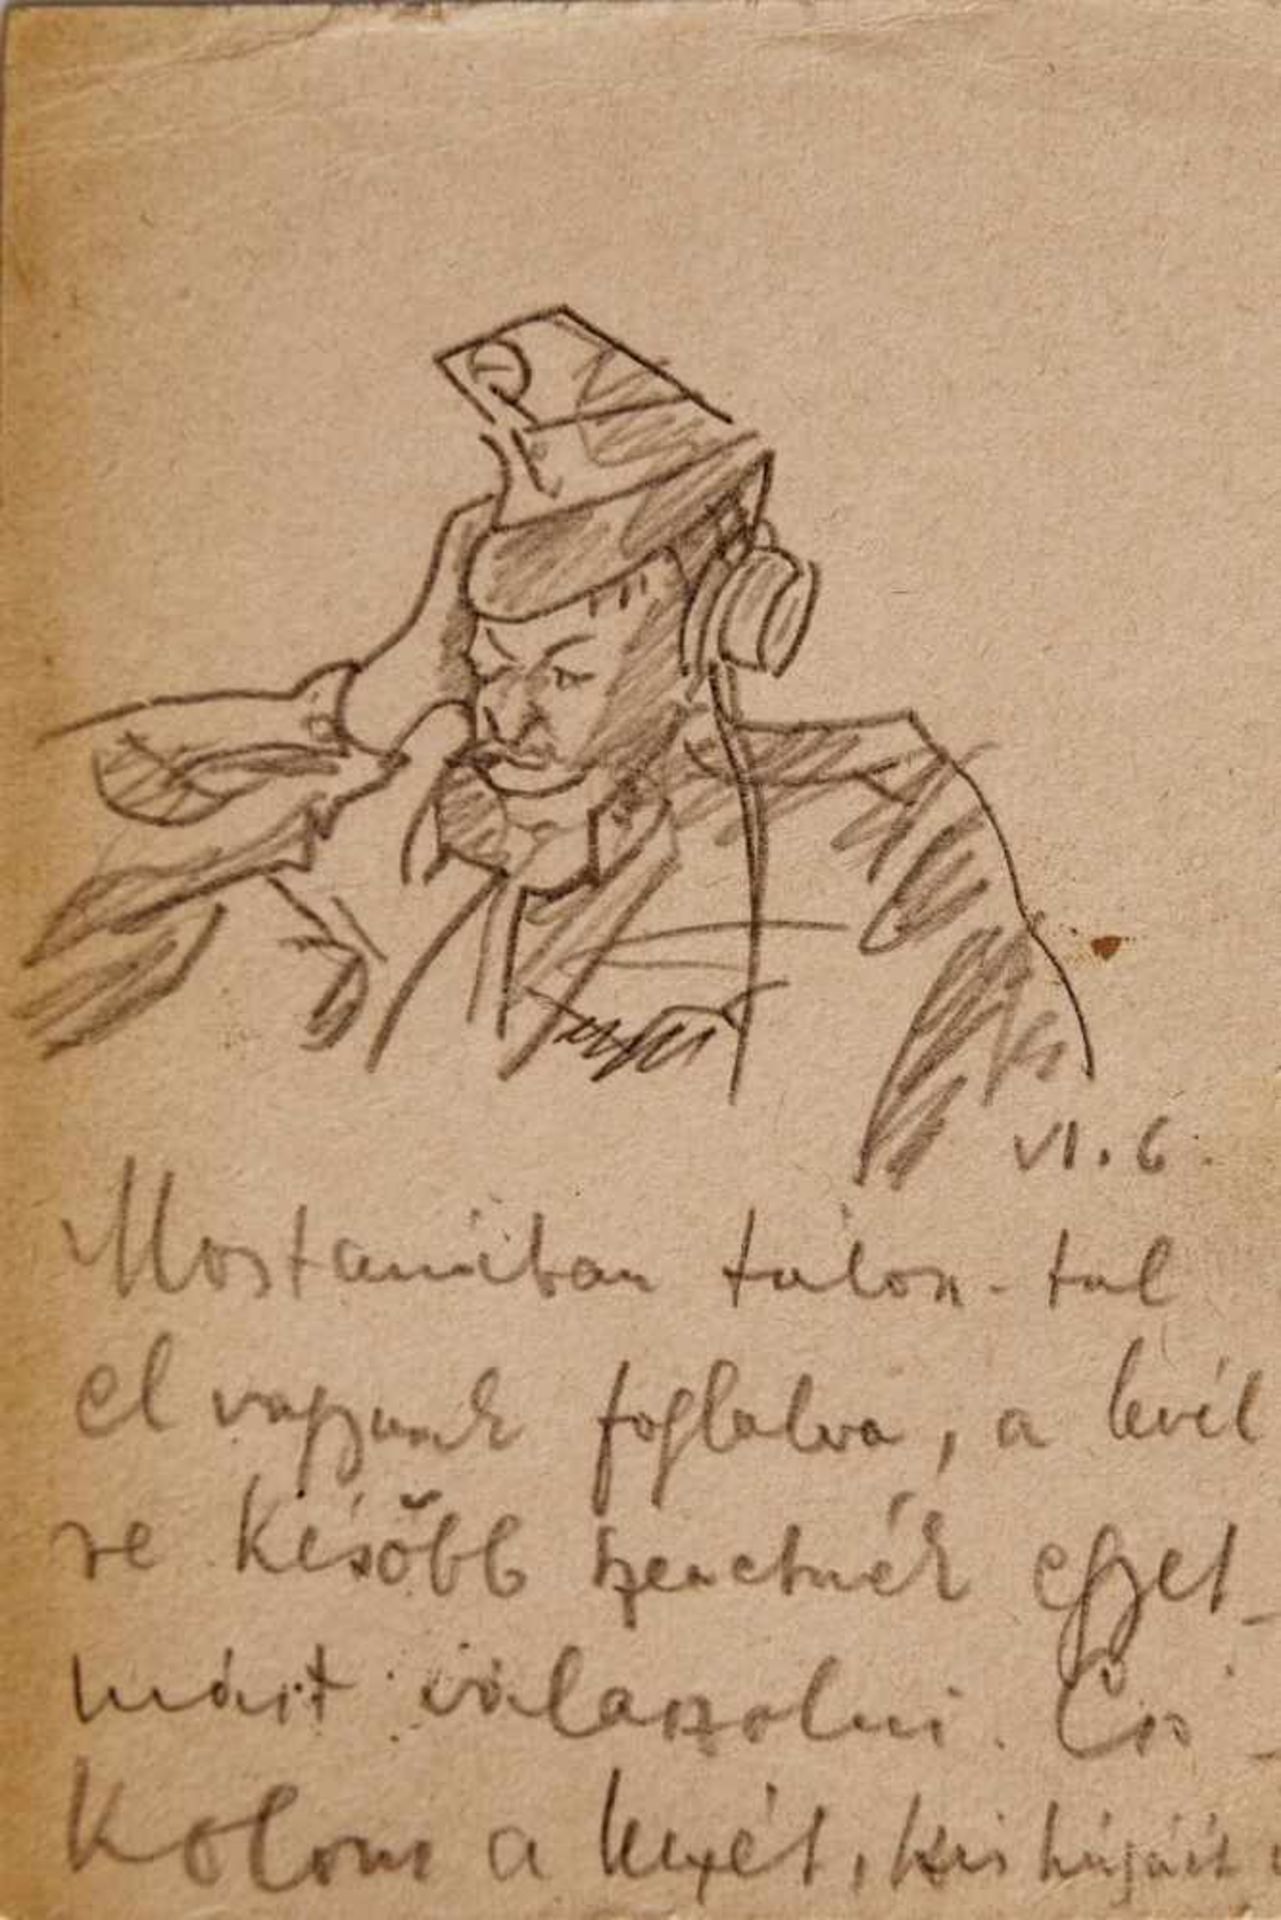 VI. 6.
Mostanában túlon-túl
el vagyunk foglalva, a levél
re később szeretnék egyet_
mást válaszolni. Csó_
Kolom a kezét, kis húgát